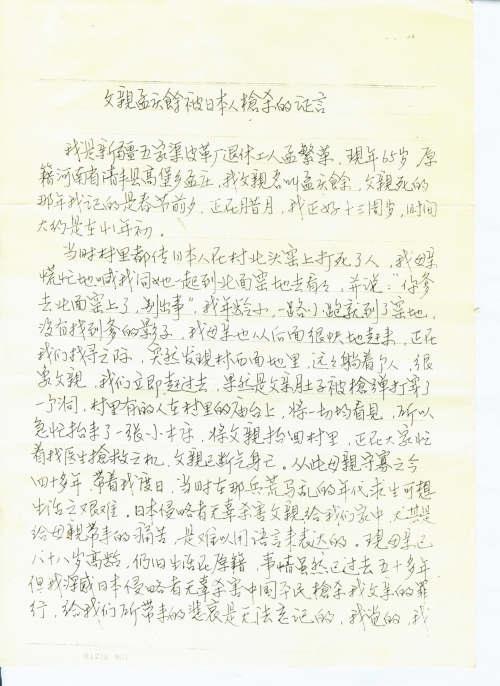 父親孟庆餘被日本人槍杀的证言
我是新疆五家渠皮革厂退休工人孟繁荣，现年65岁 原
籍河南省清丰县高堡乡孟庄，我父親名叫孟庆餘，父親死的
那年我记的是春节前夕，正在腊月，我正好十三周岁，时间
大约是在41年初。
当时村里都传日本人在村北头窑上打死了人，我母亲
慌忙地喊我同她一起到北面窑地去看々，并说："你爹
去北面窑上了，别出事"，我年龄小，一路小跑就到了窑地，
没有找到爹的影子，我母亲也从后面很快地赶来，正在
我们找寻之际，突然发现村西面地里，远々躺着个人，很
象父親，我们立即赶过去，果然是父亲肚子被槍弹打穿了
一个洞，村里有的人在村里的庙台上，将一切均看见，所以
急忙抬来了一张小木床，将父親抬回村里，正在大家忙
着找医生搶救之机，父親已断气身亡。从此母親守寡至今
四十多年 带着我度日，当时在那兵荒马乱的年代求生可想
生活之艰难。日本侵略者无辜杀害父親给我们家中，尤其是
给母親带来的痛苦，是难以用语言来表达的。现母亲已
八十八岁高龄，仍旧生活在原籍，事情虽然已过去五十多年
但我深感日本侵略者无辜杀害中国平民，槍杀我父亲的罪
行，给我们所带来的悲哀是无法忘记的，我觉的，我